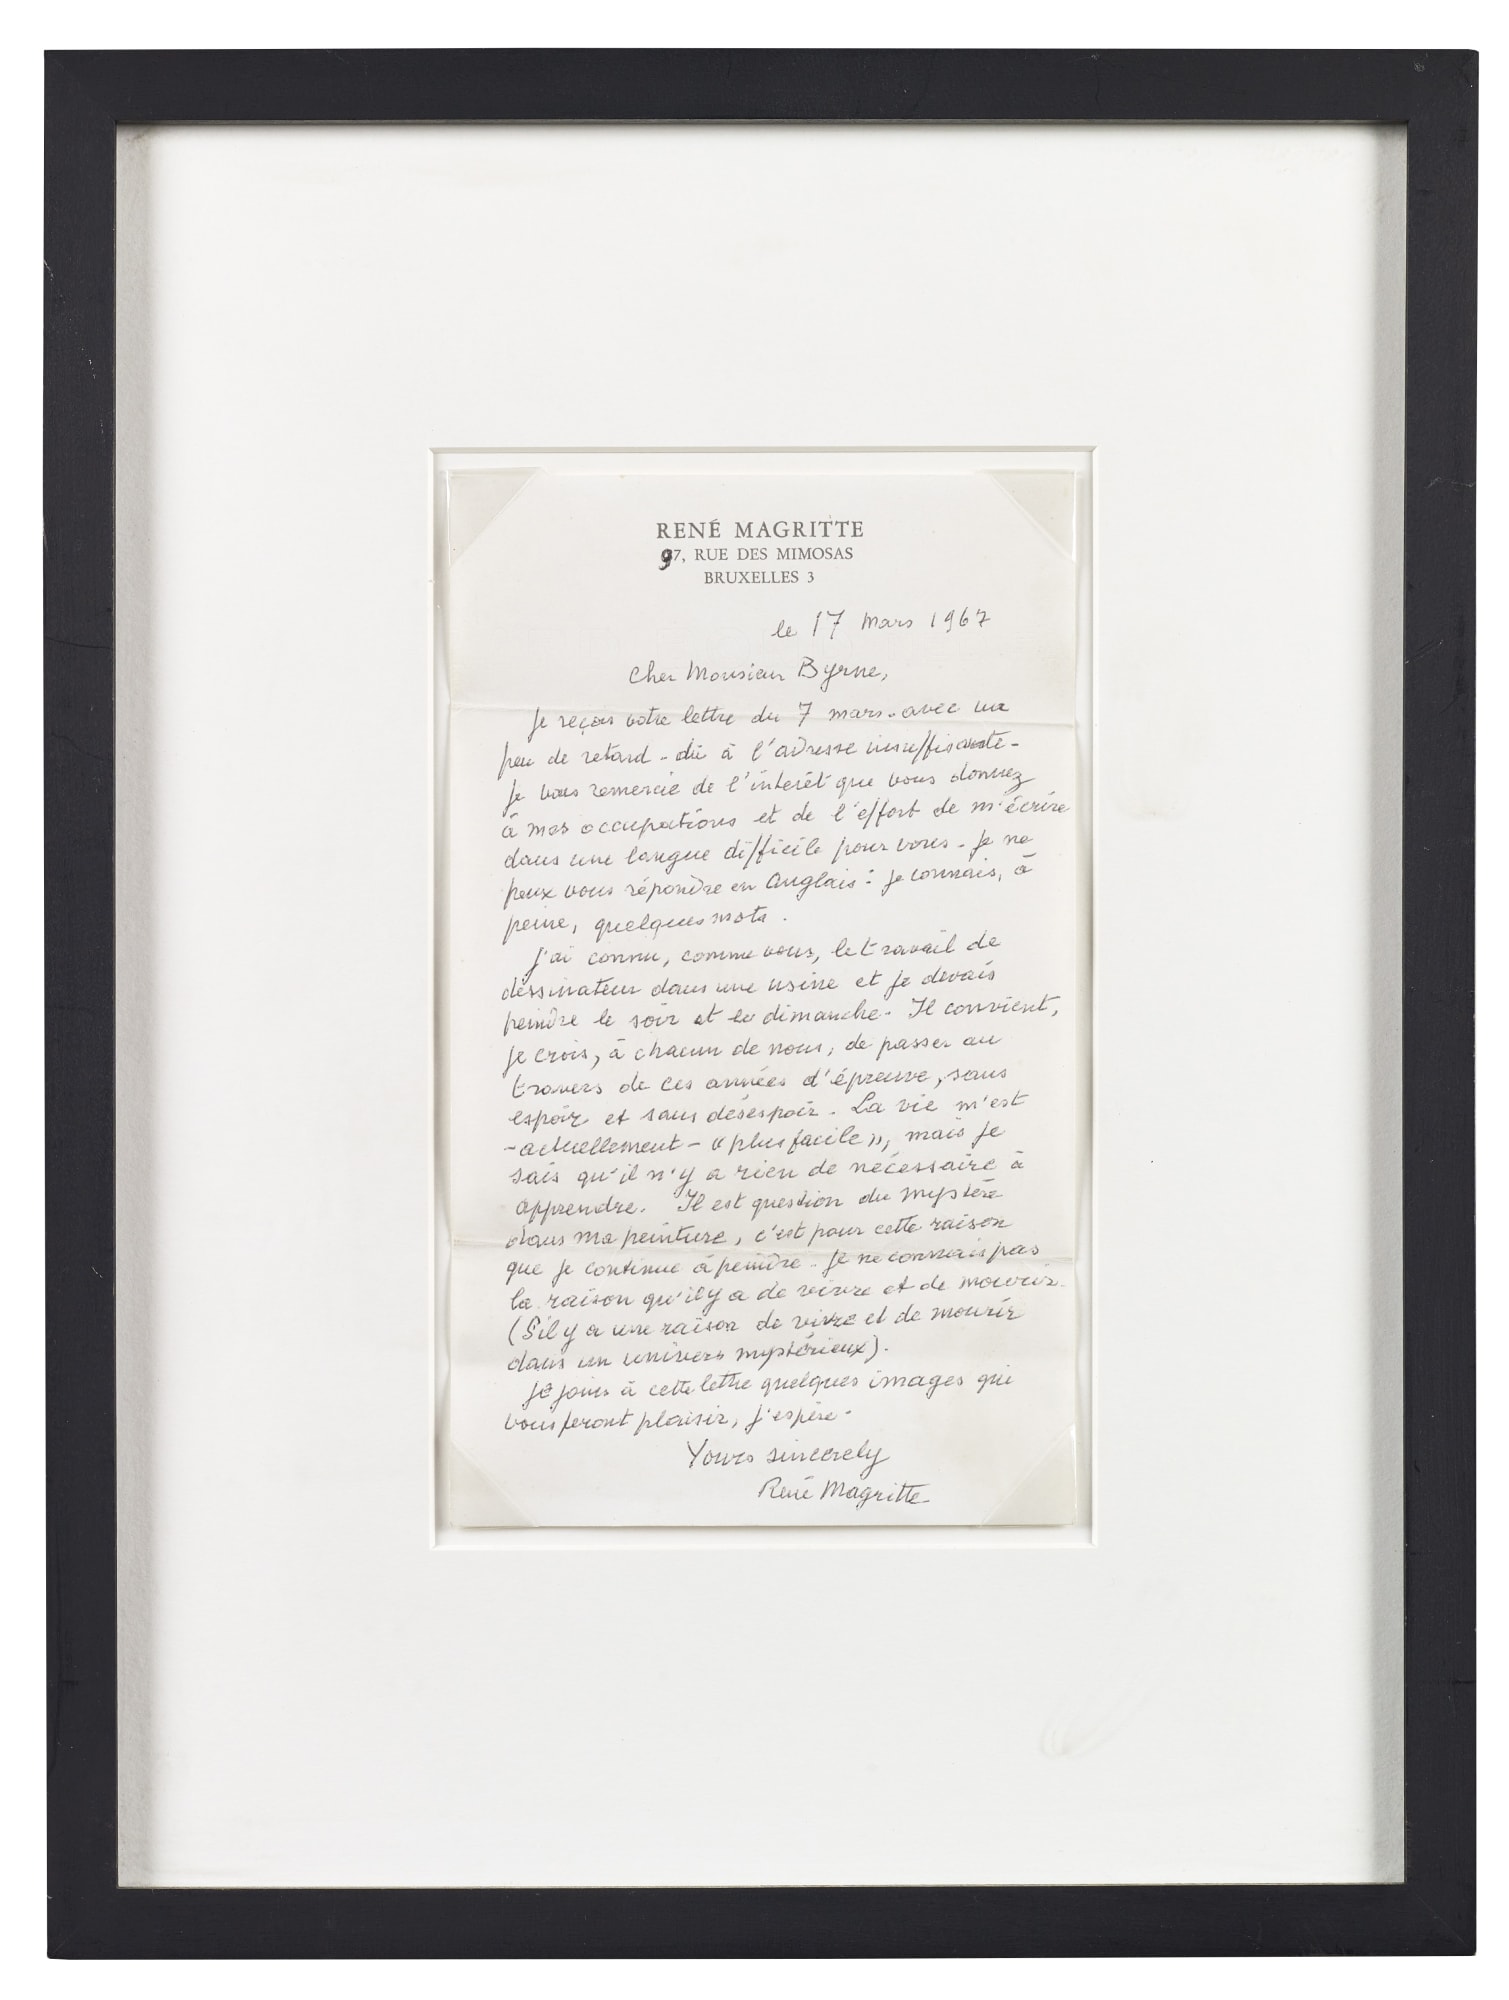 RENÉ MAGRITTE
97, RUE DES MIMOSAS
BRUXELLES 3
le 17 mars 1967
Cher Monsieur Byrne,
Je reçois votre lettre du 7 mars - avec un
peu de retard - dû à l'adresse insuffisante -
Je vous remercie de l'intérêt que vous donnez
à mes occupations et de l'effort de m'écrire
dans une langue difficile pour vous - Je ne
peux vous répondre en Anglais : je connais, à
peine, quelques mots.
J'ai connu, comme vous, le travail de
dessinateur dans une usine et je devais
peindre le soir et le dimanche - Il convient,
je crois, à chacun de nous, de passer au
travers de ces années d'épreuve, sans
espoir et sans désespoir - La vie m'est
- actuellement - « plus facile », mais je
sais qu'il n'y a rien de nécessaire à
apprendre. Il est question du mystère
dans ma peinture, c'est pour cette raison
que je continue à peindre - Je ne connais pas
la raison qu'il y a de vivre et de mourir -
(S'il y a une raison de vivre et de mourir
dans un univers mystérieux).
Je joins à cette lettre quelques images qui
vous feront plaisir, j'espère -
Yours sincerely
René Magritte